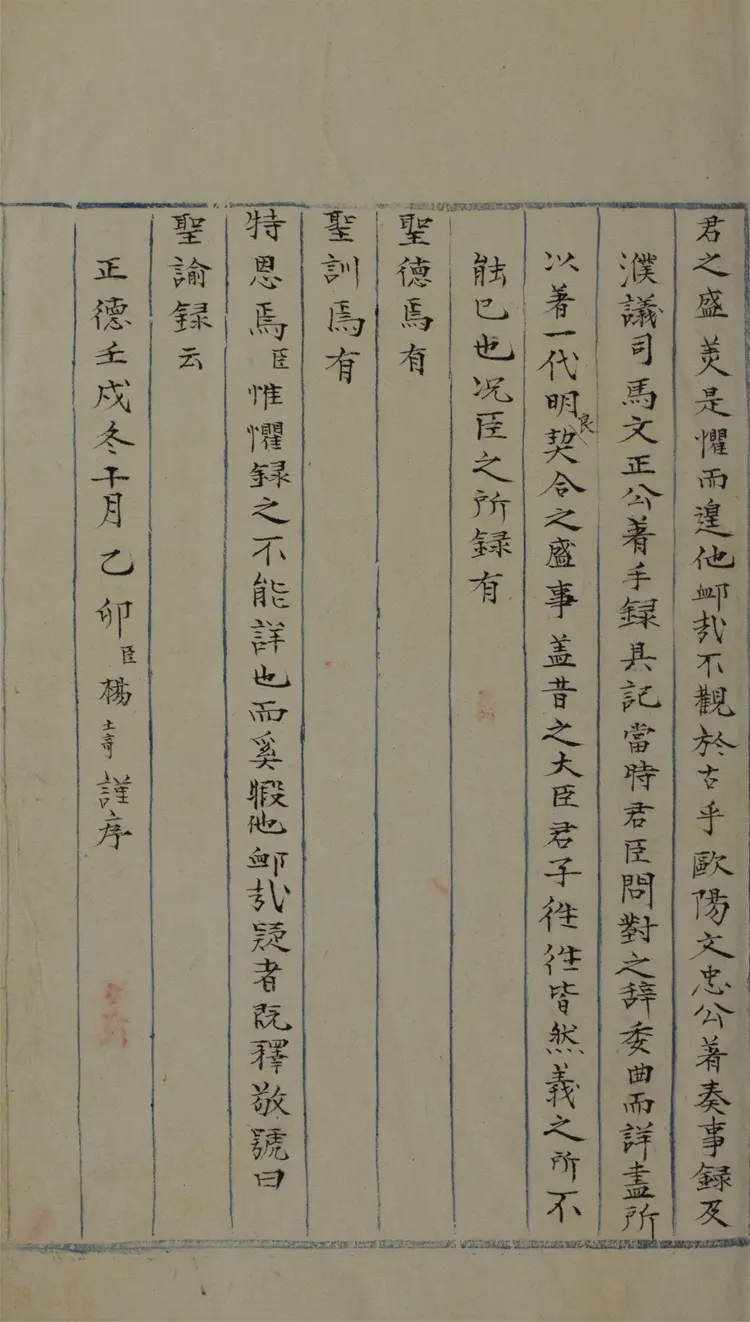 君之盛美是懼而遑他䘏㦲不觀於古乎歐陽文忠公著奏事録及
濮議司馬文正公著手録具記當時君臣問對之辞委曲而詳盡所
以著一代明良契合之盛事盖昔之大臣君子徃徃皆然義之所不
能已也况臣之所録有
聖德焉有
聖訓焉有
特恩焉臣惟懼録之不能詳也而奚暇他䘏㦲疑者既釋敬號曰
聖諭録云
正德壬戍冬十月乙卯臣楊士竒謹序